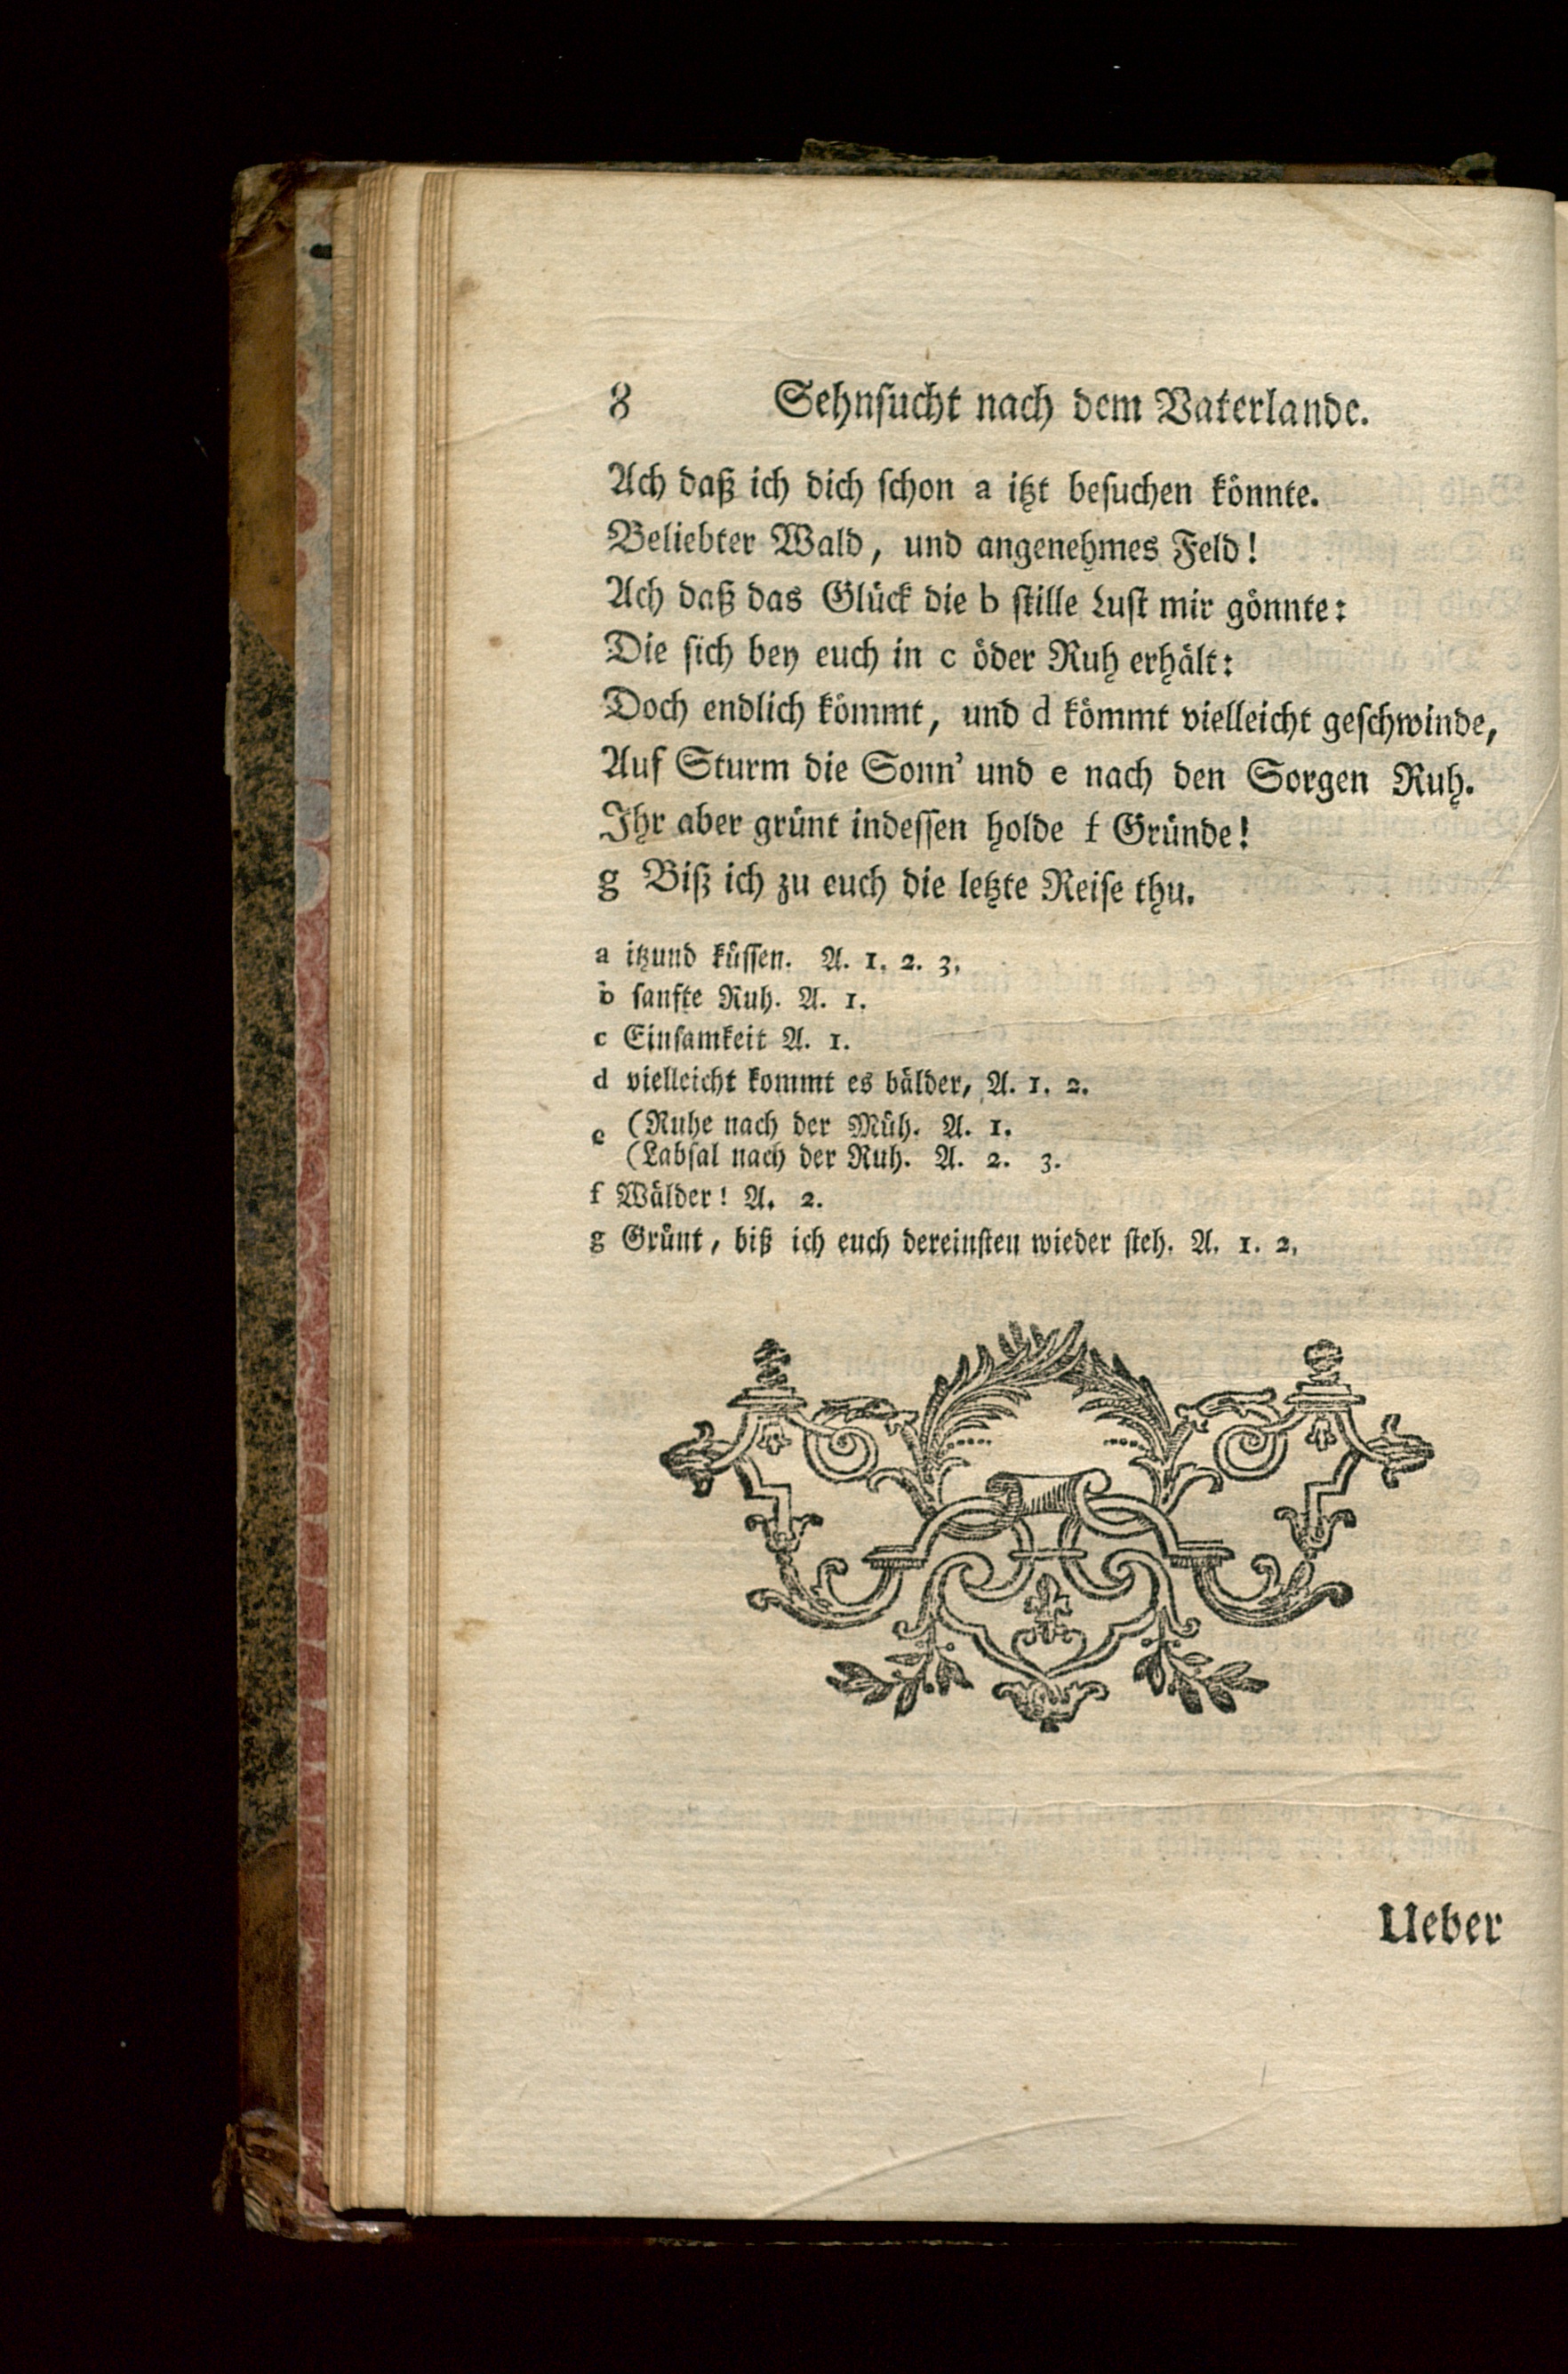 8 Sehnsucht nach dem Vaterlande.
Ach daß ich dich schon a itzt besuchen könnte.
Beliebter Wald, und angenehmes Feld!
Ach daß das Glück die b stille Lust mir gönnte:
Die sich bey euch in c öder Ruh erhält:
Doch endlich kömmt, und d kömmt vielleicht geschwinde,
Auf Sturm die Sonn' und e nach den Sorgen Ruh.
Ihr aber grünt indessen holde f Gründe!
g Biß ich zu euch die letzte Reise thu.
a itzund küssen. A. 1. 2. 3.
b sanfte Ruh. A. 1.
c Einsamkeit A. 1.
d vielleicht kommt es bälder, A. 1. 2.
e (Ruhe nach der Müh. A. 1.
(Labsal nach der Ruh. A. 2. 3.
f Wälder! A. 2.
g Grünt, biß ich euch dereinsten wieder steh. A. 1. 2.
Ueber